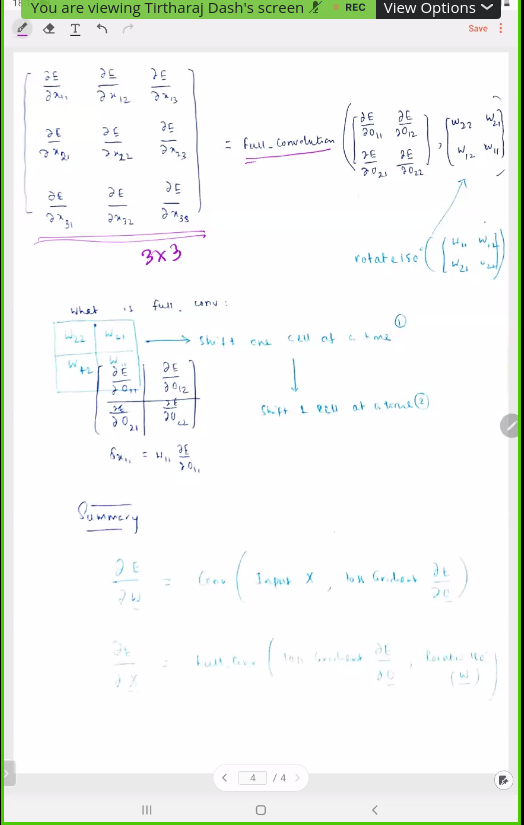 You are viewing Tirtharaj Dash's screen REC View Options
Save
T
∂E/∂x₁₁ ∂E/∂x₁₂ ∂E/∂x₁₃
∂E/∂x₂₁ ∂E/∂x₂₂ ∂E/∂x₂₃
∂E/∂x₃₁ ∂E/∂x₃₂ ∂E/∂x₃₃
= full_convolution ( [ ∂E/∂O₁₁ ∂E/∂O₁₂
∂E/∂O₂₁ ∂E/∂O₂₂ ] , [ W₂₂ W₂₁
W₁₂ W₁₁ ] )
3x3
rotate180° ( [ W₁₁ W₁₂
W₂₁ W₂₂ ] )
What is full_conv :
W₂₂ W₂₁ → shift one cell at a time ①
W₁₂ W
∂E/∂O₁₁ ∂E/∂O₁₂
∂E/∂O₂₁ ∂E/∂O₂₂
shift 1 cell at a time ②
δx₁₁ = W₁₁ ∂E/∂O₁₁
Summary
∂E/∂W = Conv ( Input X , loss Gradient ∂E/∂O )
∂E/∂X = full_conv ( loss Gradient ∂E/∂O , (W) )
4 / 4